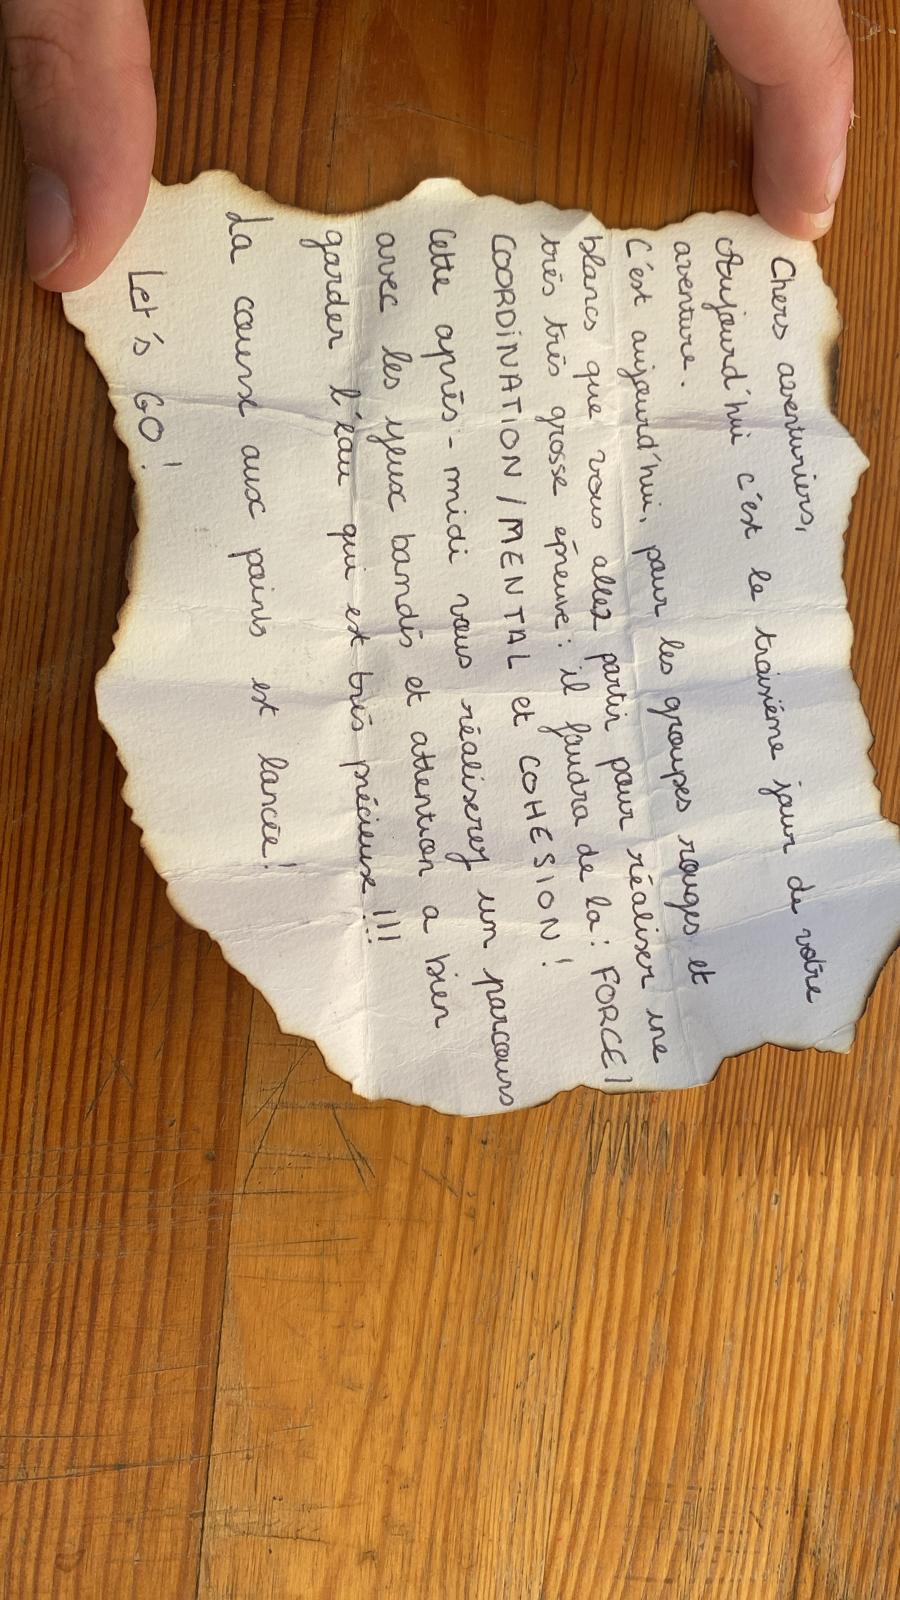 Chers aventuriers,
Aujourd'hui c'est le troisième jour de votre
aventure.
C'est aujourd'hui, pour les groupes rouges et
blancs que vous allez partir pour réaliser une
très très grosse épreuve : il faudra de la : FORCE /
COORDINATION / MENTAL et COHESION !
Cette après-midi vous réaliserez un parcours
avec les yeux bandés et attention a bien
garder l'eau qui est très précieuse !!!
La course aux points est lancée !
Let's GO !